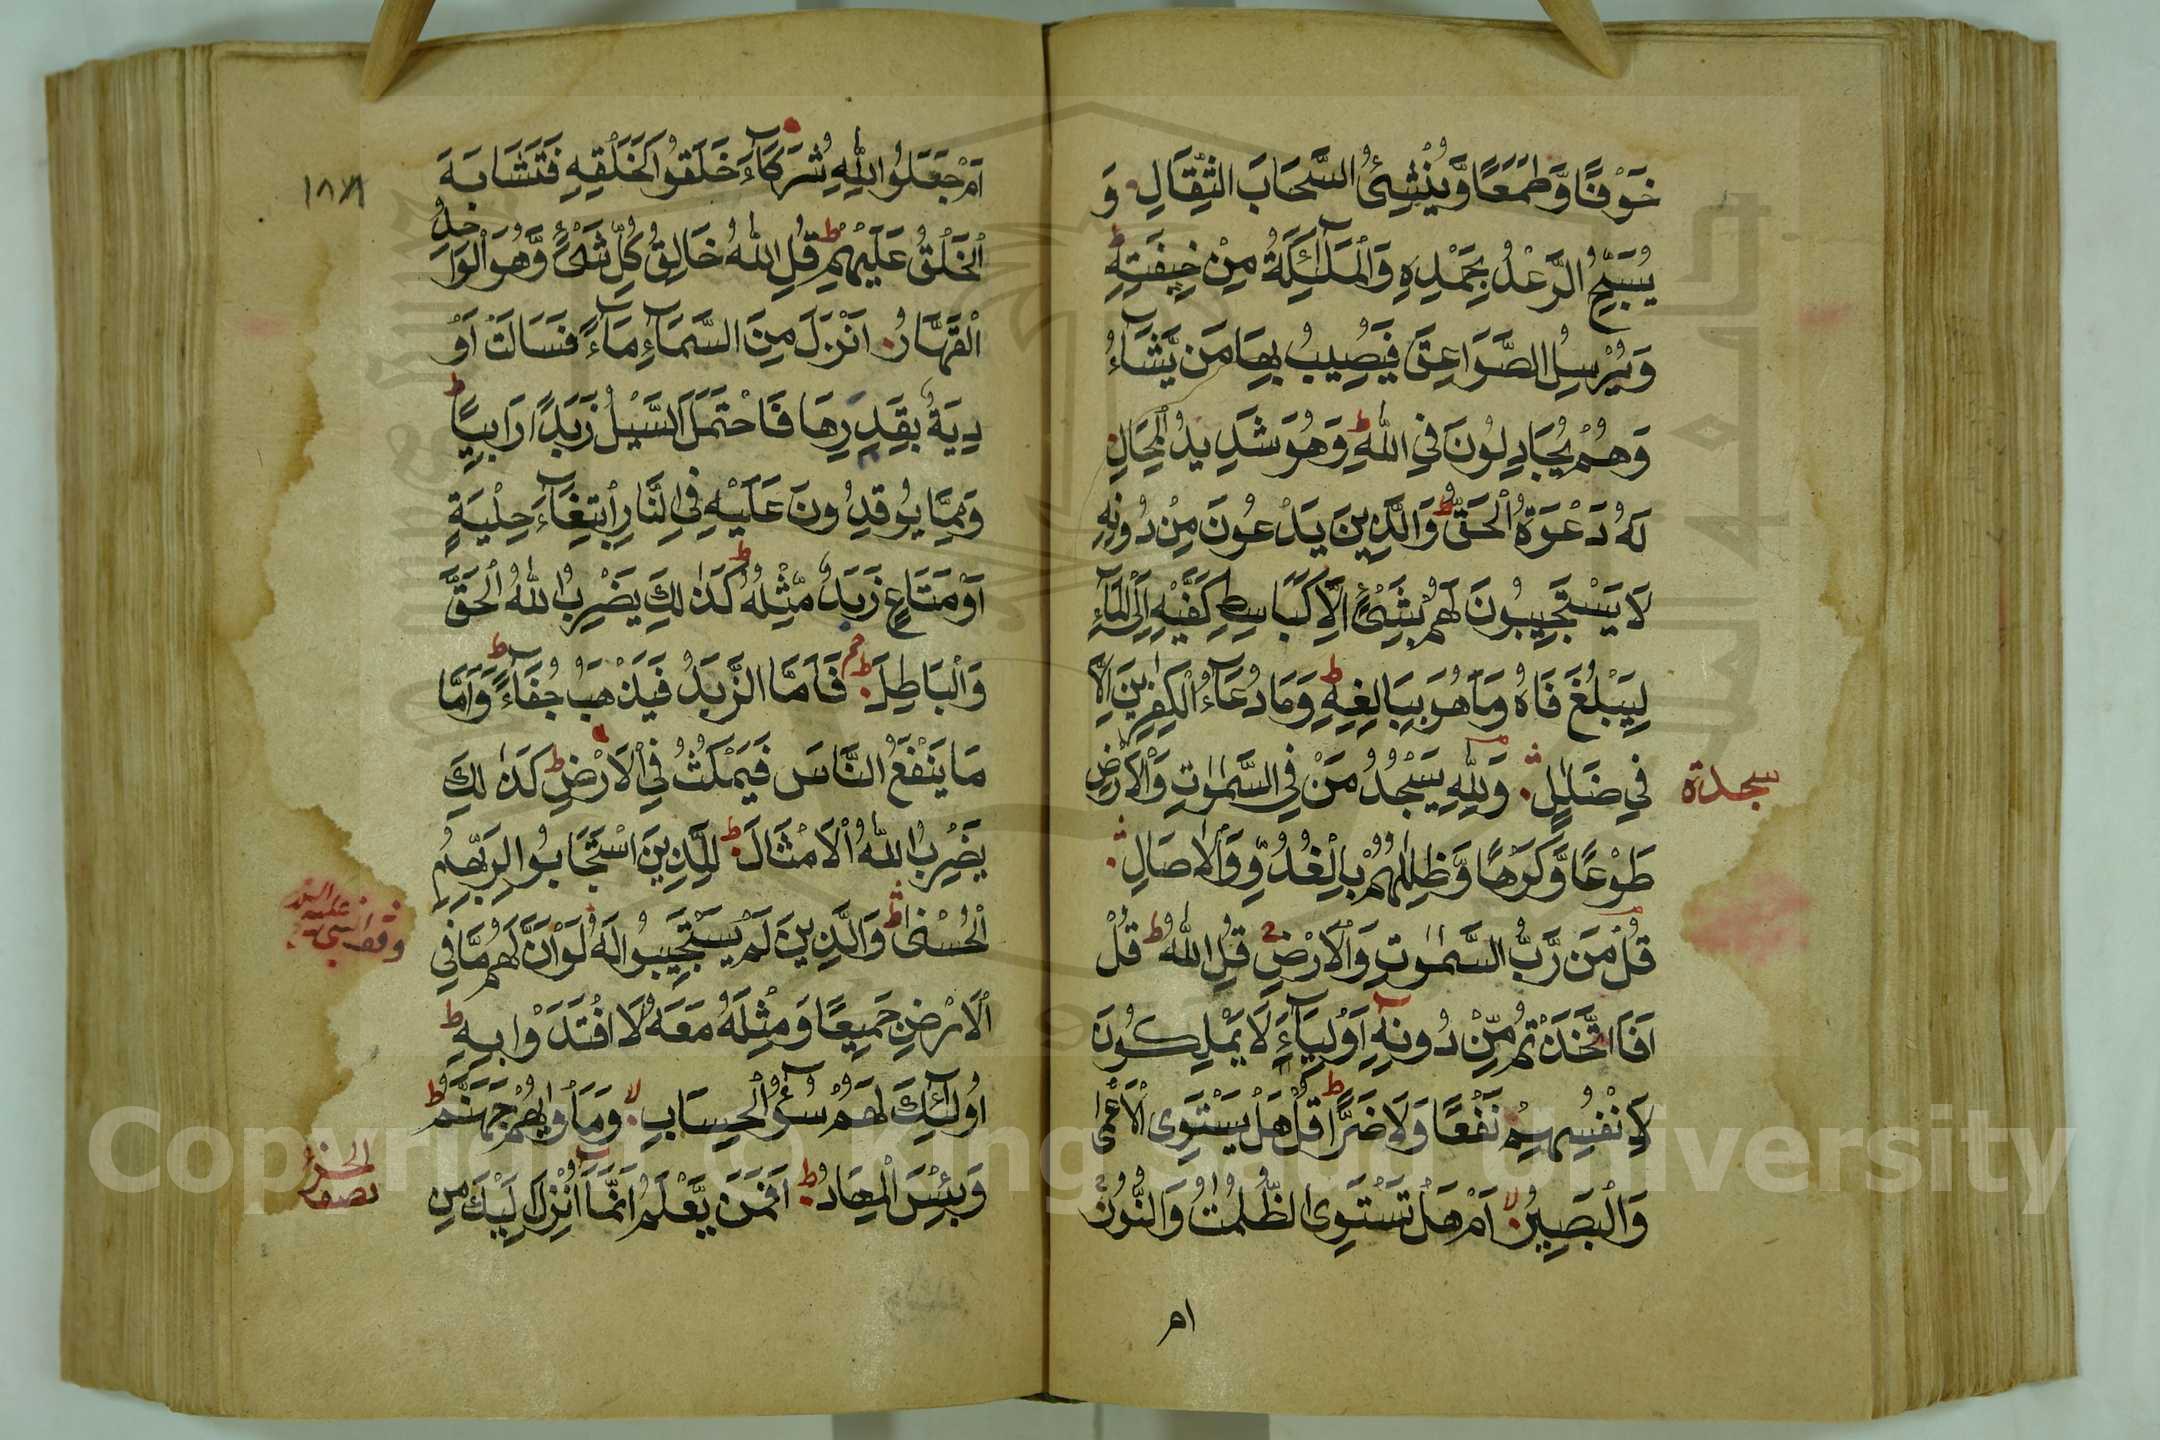 خَوْفًا وَّطَمَعًا وَّيُنْشِئُ السَّحَابَ الثِّقَالِ وَ
يُسَبِّحُ الرَّعْدُ بِحَمْدِهِ وَالْمَلٰٓئِكَةُ مِنْ خِيفَتِهِ ط
وَيُرْسِلُ الصَّوَاعِقَ فَيُصِيبُ بِهَا مَن يَّشَآءُ
وَهُمْ يُجَادِلُونَ فِي اللّٰهِ ط وَهُوَ شَدِيدُ الْمِحَالِ
لَهُ دَعْوَةُ الْحَقِّ ط وَالَّذِينَ يَدْعُونَ مِنْ دُونِهِ
لَا يَسْتَجِيبُونَ لَهُمْ بِشَيْءٍ اِلَّا كَبَاسِطِ كَفَّيْهِ اِلَى الْمَآءِ
لِيَبْلُغَ فَاهُ وَمَا هُوَ بِبَالِغِهِ ط وَمَا دُعَآءُ الْكٰفِرِينَ اِلَّا
فِي ضَلٰلٍ وَلِلّٰهِ يَسْجُدُ مَنْ فِي السَّمٰوٰتِ وَالْاَرْضِ
سجدة
طَوْعًا وَّكَرْهًا وَّظِلٰلُهُمْ بِالْغُدُوِّ وَالْاٰصَالِ
قُلْ مَن رَّبُّ السَّمٰوٰتِ وَالْاَرْضِ قُلِ اللّٰهُ ط قُلْ
اَفَاتَّخَذْتُمْ مِّنْ دُونِهِٓ اَوْلِيَآءَ لَا يَمْلِكُونَ
لِاَنْفُسِهِمْ نَفْعًا وَلَا ضَرًّا ط قُلْ هَلْ يَسْتَوِى الْاَعْمٰى
وَالْبَصِيرُ لا اَمْ هَلْ تَسْتَوِى الظُّلُمٰتُ وَالنُّورُ
ام
١٨٧
اَمْ جَعَلُوا لِلّٰهِ شُرَكَآءَ خَلَقُوا كَخَلْقِهِ فَتَشَابَهَ
الْخَلْقُ عَلَيْهِمْ ط قُلِ اللّٰهُ خَالِقُ كُلِّ شَيْءٍ وَّهُوَ الْوَاحِدُ
الْقَهَّارُ اَنْزَلَ مِنَ السَّمَآءِ مَآءً فَسَالَتْ اَوْ
دِيَةٌ بِقَدَرِهَا فَاحْتَمَلَ السَّيْلُ زَبَدًا رَابِيًا ط
وَمِمَّا يُوقِدُونَ عَلَيْهِ فِي النَّارِ ابْتِغَآءَ حِلْيَةٍ
اَوْ مَتَاعٍ زَبَدٌ مِّثْلُهُ ط كَذٰلِكَ يَضْرِبُ اللّٰهُ الْحَقَّ
وَالْبَاطِلَ ط فَاَمَّا الزَّبَدُ فَيَذْهَبُ جُفَآءً ط وَاَمَّا
مَا يَنْفَعُ النَّاسَ فَيَمْكُثُ فِي الْاَرْضِ ط كَذٰلِكَ
يَضْرِبُ اللّٰهُ الْاَمْثَالَ ط لِلَّذِينَ اسْتَجَابُوا لِرَبِّهِمُ
الْحُسْنٰى ط وَالَّذِينَ لَمْ يَسْتَجِيبُوا لَهُ لَوْ اَنَّ لَهُمْ مَّا فِي
الْاَرْضِ جَمِيعًا وَمِثْلَهُ مَعَهُ لَافْتَدَوْا بِهِ ط
اُولٰٓئِكَ لَهُمْ سُوٓءُ الْحِسَابِ لا وَمَاْوٰيهُمْ جَهَنَّمُ ط
وَبِئْسَ الْمِهَادُ ط اَفَمَنْ يَّعْلَمُ اَنَّمَآ اُنْزِلَ اِلَيْكَ مِن
وقف النبي عليه
نصف الحزب
Copyright © King Saud University